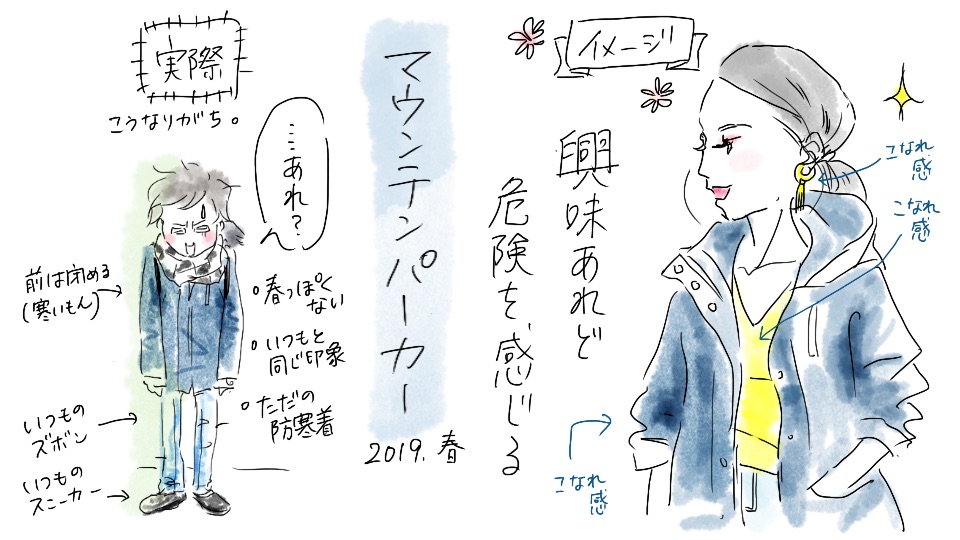 イメージ
興味あれど
危険を感じる
こなれ
感
こなれ
感
こなれ
感
マウンテンパーカー
2019.春
実際
こうなりがち。
…あれ?
前は閉める
(寒いもん)
いつもの
ズボン
いつもの
スニーカー
春っぽく
ない
いつもと
同じ印象
ただの
防寒着